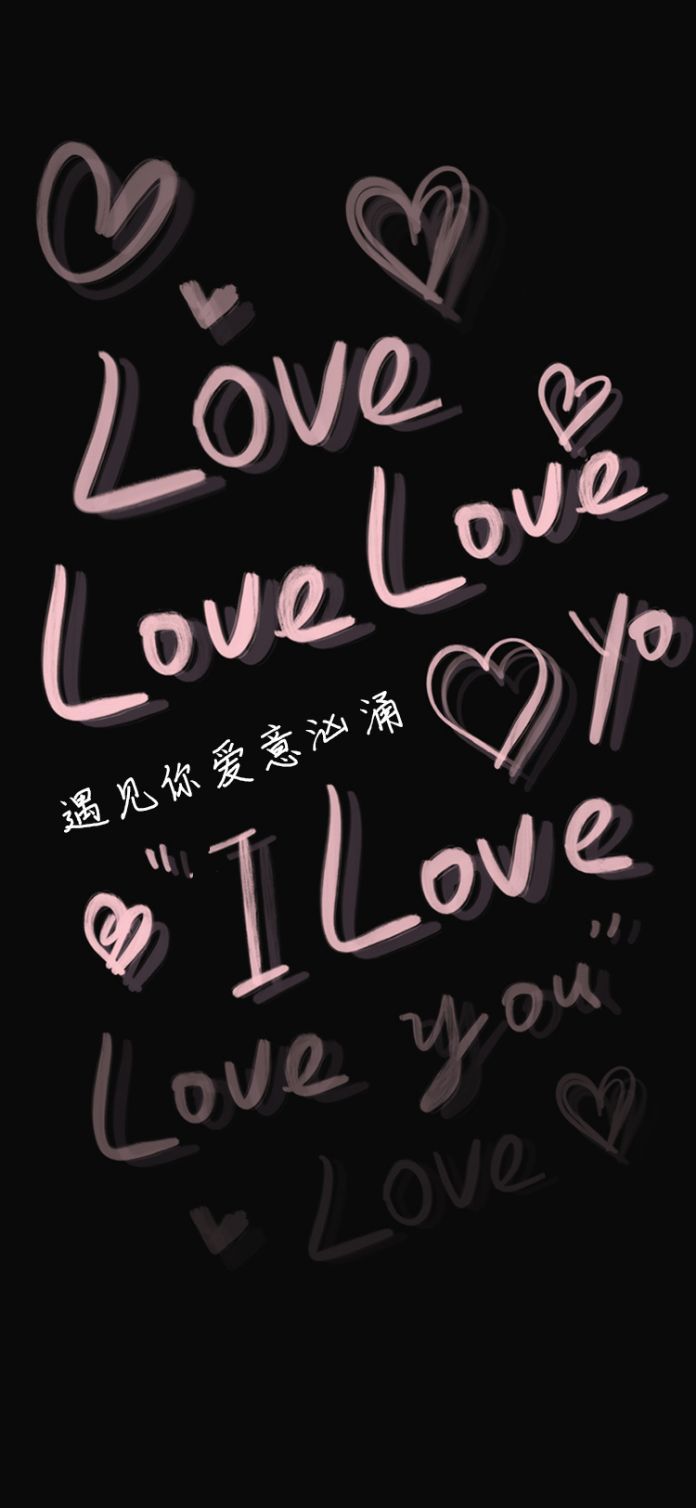 Love
Love
Love
Yo
遇见你爱意汹涌
"I Love
you"
Love
Love